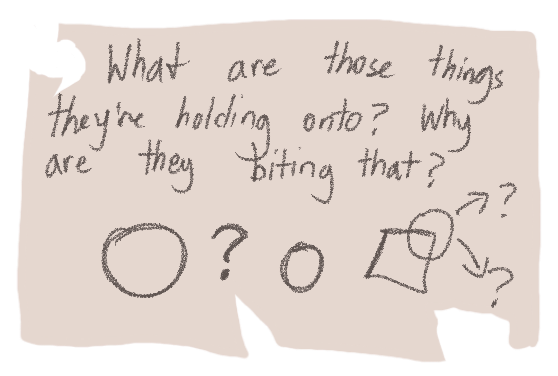 What are those things
they're holding onto? Why
are they biting that?
?
?
?